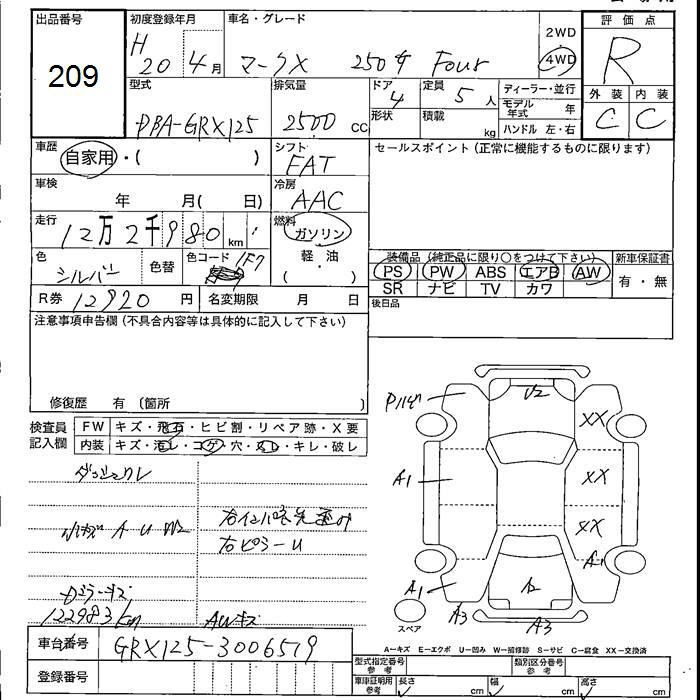 出品番号
209
初度登録年月
H 20 4月
車名・グレード
マークX 250G Four
2WD
4WD
評価点
R
外装 内装
C C
型式
DBA-GRX125
排気量
2500 cc
ドア
4
形状
定員
5人
積載
kg
ディーラー・並行
モデル年式 年
ハンドル 左・右
車歴
自家用・( )
シフト
FAT
セールスポイント (正常に機能するものに限ります)
車検
年 月( 日)
冷房
AAC
走行
12万2千980 km
燃料
ガソリン
軽・油
( )
色
シルバー
色替
色コード
1F7
装備品 (純正品に限り○をつけて下さい)
新車保証書
PS PW ABS エアB AW
SR ナビ TV カワ
有・無
R券 12920 円
名変期限 月 日
後日品
注意事項申告欄 (不具合内容等は具体的に記入して下さい)
修復歴 有 (箇所 )
検査員記入欄
FW キズ・飛石・ヒビ割・リペア跡・X要
内装 キズ・汚レ・コゲ・穴・スレ・キレ・破レ
ダッシュクレ
小キズ A U W2
右ピラーU
122983km
AWキズ
車台番号 GRX125-3006579
登録番号
U2
XX
A1
XX
XX
A1
A1
A3
A3
スペア
A-キズ E-エクボ U-凹み W-補修跡 S-サビ C-腐食 XX-交換済
型式指定番号
参考
類別区分番号
参考
車庫証明用
参考
長さ cm
幅 cm
高さ cm